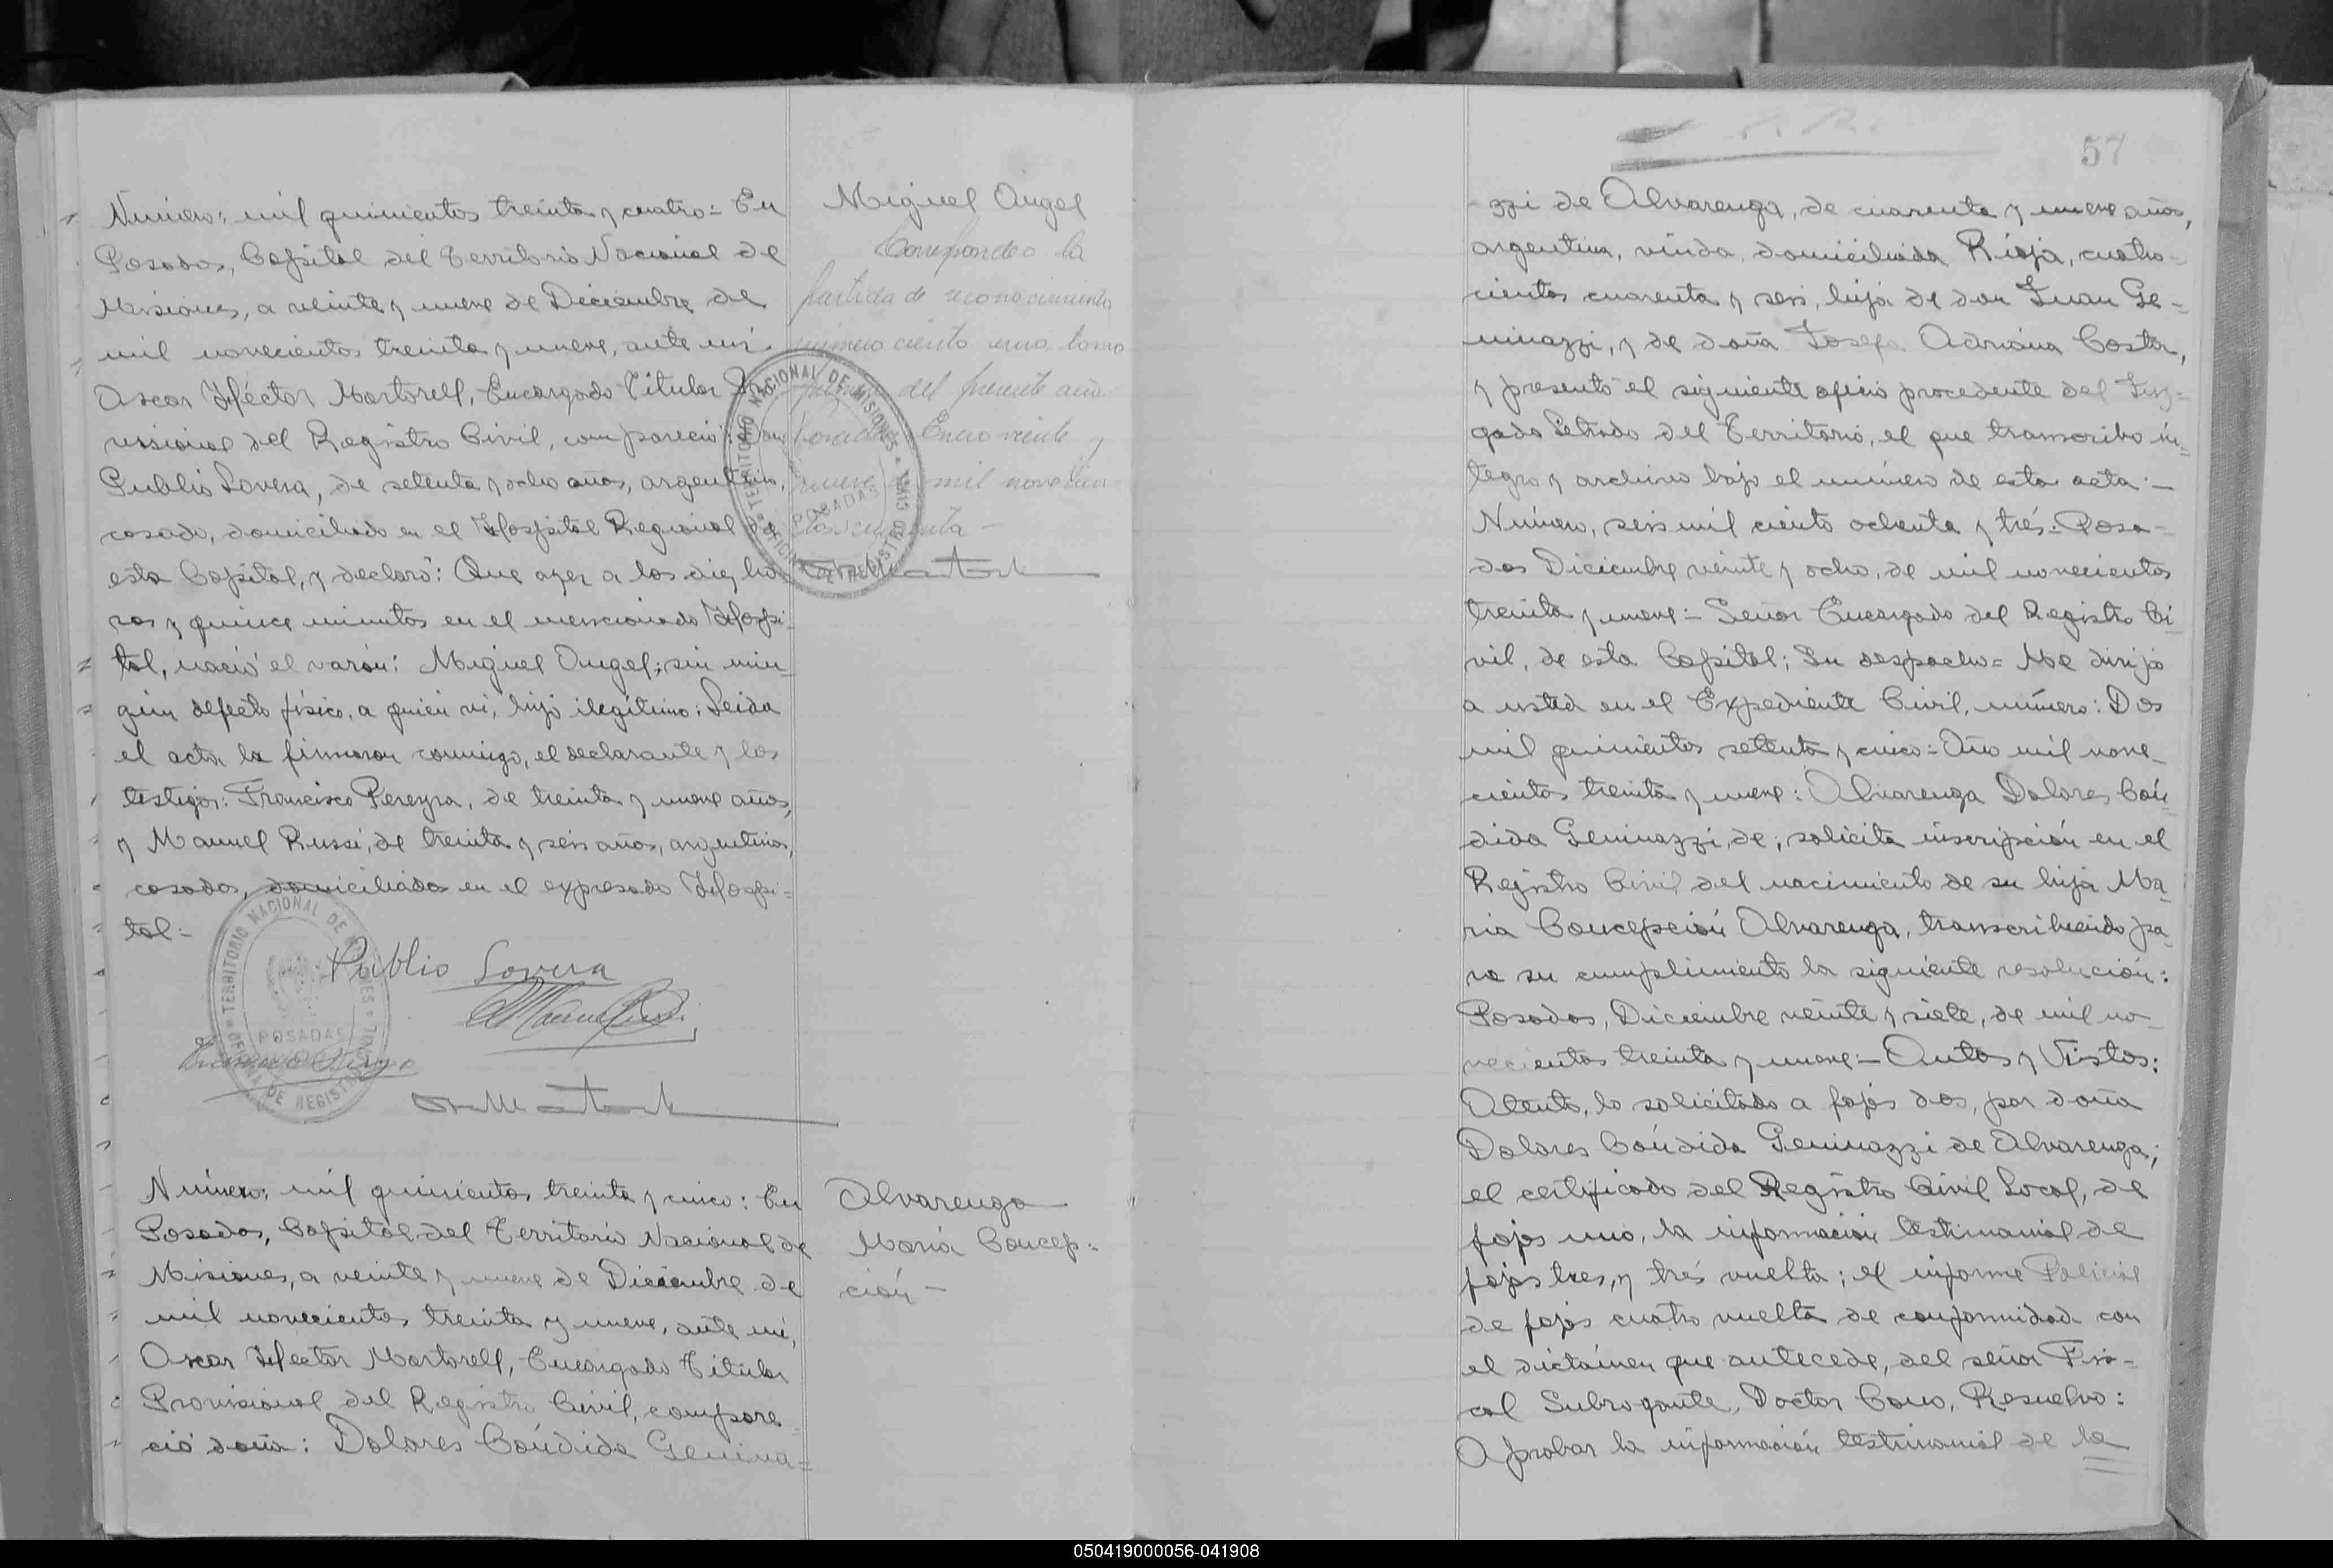 Número: mil quinientos treinta y cuatro = En
Posadas, Capital del Territorio Nacional de
Misiones, a veinte y nueve de Diciembre de
mil novecientos treinta y nueve, ante mí.
Oscar Héctor Martorell, Encargado Titular
visional del Registro Civil, compareció: don
Publio Lovera, de setenta y ocho años, argentino,
casado, domiciliado en el Hospital Regional de
esta Capital, y declaró: Que ayer a las diez ho
ras y quince minutos en el mencionado Hospi-
tal, nació el varón: Miguel Angel; sin nin
gún defecto físico, a quien vi, hijo ilegítimo: Leída
el acta la firmaron conmigo, el declarante y los
testigos: Francisco Pereyra, de treinta y nueve años,
y Manuel Russi, de treinta y seis años, argentinos,
casados, domiciliados en el expresado Hospi=
tal =
Publio Lovera
TERRITORIO NACIONAL DE MISIONES
POSADAS
OFICINA DE REGISTRO CIVIL
Miguel Angel
Corresponde a la
partida de reconocimiento
número ciento uno, tomo
del presente año
Posadas, Enero veinte y
nueve de mil novecien-
tos cuarenta -
TERRITORIO NACIONAL DE MISIONES
POSADAS
OFICINA DE REGISTRO CIVIL
Número: mil quinientos treinta y cinco: En
Posadas, Capital del Territorio Nacional de
Misiones, a veinte y nueve de Diciembre de
mil novecientos treinta y nueve, ante mí,
Oscar Héctor Martorell, Encargado Titular
Provisional del Registro Civil, compare
ció doña: Dolores Cándida Gemina=
Alvarenga
María Concep=
ción -
57
zzi de Alvarenga, de cuarenta y nueve años,
argentina, viuda, domiciliada Rioja, cuatro-
cientos cuarenta y seis, hija de don Juan Ge-
minazzi, y de doña Josefa Adriana Costa,
y presentó el siguiente oficio procedente del Juz=
gado Letrado del Territorio, el que transcribo ín-
tegro y archivo bajo el número de esta acta: -
Número, seis mil ciento ochenta y trés: Posa-
das Diciembre veinte y ocho, de mil novecientos
treinta y nueve = Señor Encargado del Registro Ci
vil, de esta Capital; Su despacho = Me dirijo
a usted en el Expediente Civil, número: Dos
mil quinientos setenta y cinco = Año mil nove-
cientos treinta y nueve: Alvarenga Dolores Cán
dida Geminazzi, de; solicita inscripción en el
Registro Civil del nacimiento de su hija Ma
ria Concepción Alvarenga, transcribiendo pa-
ra su cumplimiento la siguiente resolución:
Posadas, Diciembre veinte y siete, de mil no-
vecientos treinta y nueve: - Autos y Vistos:
Atento, lo solicitado a fojas dos, por doña
Dolores Cándida Geminazzi de Alvarenga;
el certificado del Registro Civil Local, de
fojas uno, la información testimonial de
fojas tres, y trés vuelta; el informe Policial
de fojas cuatro vuelta de conformidad con
el dictámen que antecede, del señor Fis-
cal Subrogante, Doctor Cano, Resuelvo:
Aprobar la información testimonial de la
050419000056-041908